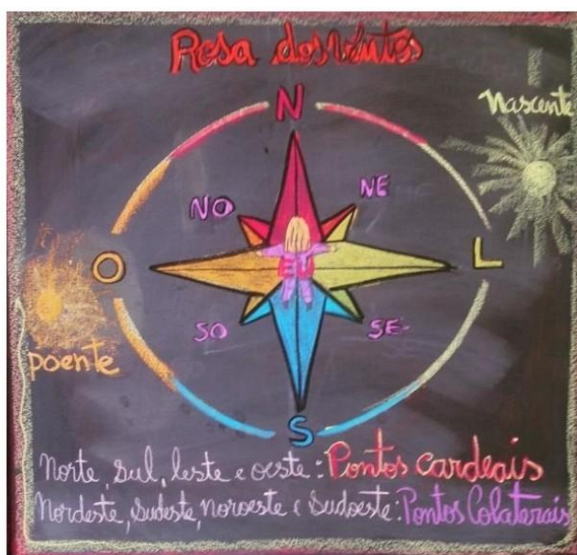 Rosa dos Ventos
N
Nascente
NO
NE
O
EU
L
SO
SE
poente
S
Norte, Sul, leste e oeste: Pontos cardeais
Nordeste, Sudeste, noroeste e Sudoeste: Pontos Colaterais